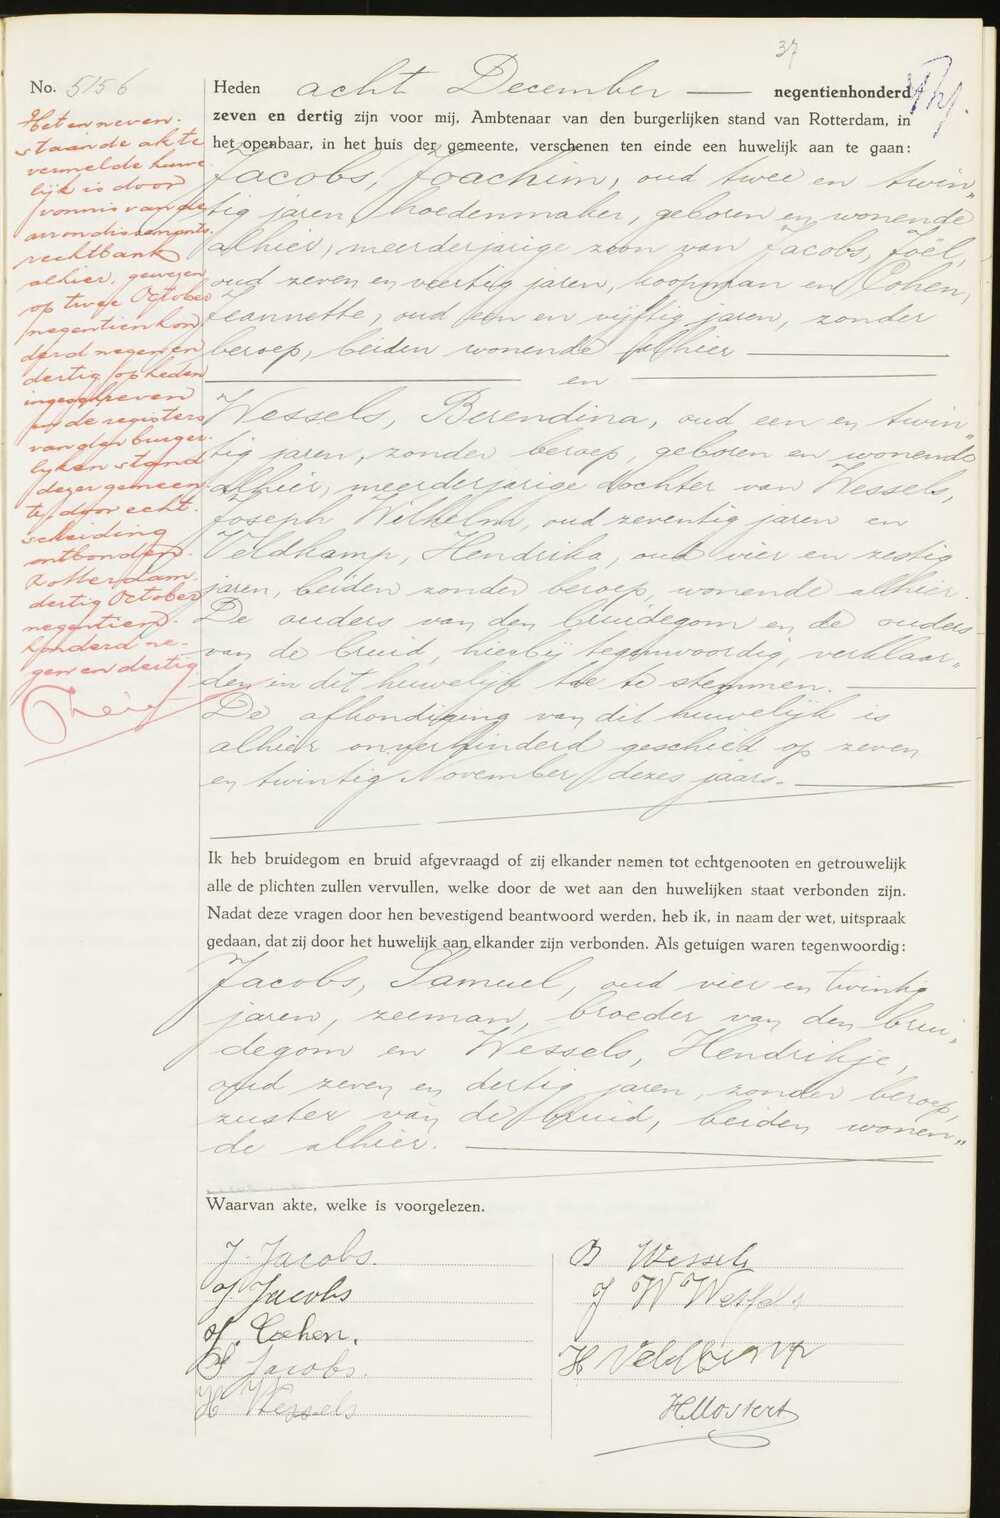 37
No. 5156
Heden acht December negentienhonderd
zeven en dertig zijn voor mij, Ambtenaar van den burgerlijken stand van Rotterdam, in
het openbaar, in het huis der gemeente, verschenen ten einde een huwelijk aan te gaan:
Jacobs, Joachim, oud twee en twin„
tig jaren, hoedenmaker, geboren en wonende
alhier, meerderjarige zoon van Jacobs, Joël,
oud zeven en veertig jaren, koopman en Cohen,
Jeannette, oud een en vijftig jaren, zonder
beroep, beiden wonende alhier
en
Wessels, Berendina, oud een en twin„
tig jaren, zonder beroep, geboren en wonende
alhier, meerderjarige dochter van Wessels,
Joseph Wilhelm, oud zeventig jaren en
Veldkamp, Hendrika, oud vier en zestig
jaren, beiden zonder beroep, wonende alhier.
De ouders van den bruidegom en de ouders
van de bruid, hierbij tegenwoordig, verklaar„
den in dit huwelijk toe te stemmen.
De afkondiging van dit huwelijk is
alhier onverhinderd geschied op zeven
en twintig November dezes jaars.
Ik heb bruidegom en bruid afgevraagd of zij elkander nemen tot echtgenooten en getrouwelijk
alle de plichten zullen vervullen, welke door de wet aan den huwelijken staat verbonden zijn.
Nadat deze vragen door hen bevestigend beantwoord werden, heb ik, in naam der wet, uitspraak
gedaan, dat zij door het huwelijk aan elkander zijn verbonden. Als getuigen waren tegenwoordig:
Jacobs, Samuel, oud vier en twintig
jaren, zeeman, broeder van den brui„
degom en Wessels, Hendrikje,
oud zeven en dertig jaren, zonder beroep,
zuster van de bruid, beiden wonen„
de alhier.
Waarvan akte, welke is voorgelezen.
J. Jacobs.
J. Jacobs
J. Cohen.
S. Jacobs.
H Wessels
B Wessels
J W Wessels
H Veldkamp
H. Mostert
Het en neven-
staande akte
vermelde huwe
lijk is door
vonnis van de
arrondissements-
rechtbank
alhier, gewezen
op twee October
negentienhon
derd negen en
dertig, op heden
ingeschreven
in de registers
van den burger-
lijken stand
dezer gemeen
te, door echt-
scheiding
ontbonden.
Rotterdam,
dertig October
negentien-
honderd ne-
gen en dertig